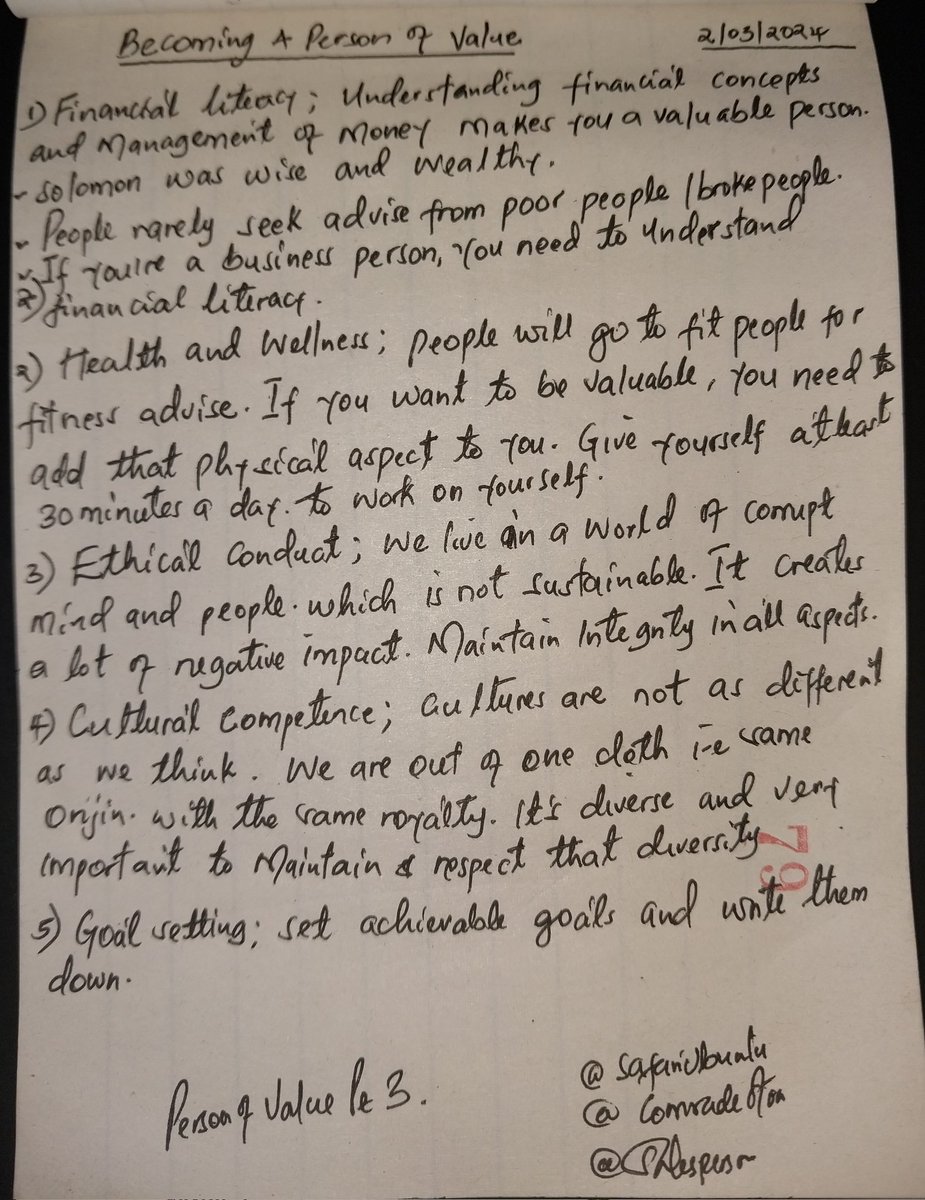 Becoming A Person of Value 2/03/2024
1) Financial literacy; Understanding financial concepts
and Management of Money makes you a valuable person.
- Solomon was wise and wealthy.
- People rarely seek advise from poor people / broke people.
- If you're a business person, you need to understand
2) financial literacy.
2) Health and Wellness; people will go to fit people for
fitness advise. If you want to be valuable, you need to
add that physical aspect to you. Give yourself atleast
30 minutes a day. to work on yourself.
3) Ethical Conduct; we live in a world of corrupt
mind and people. which is not sustainable. It creates
a lot of negative impact. Maintain Integrity in all aspects.
4) Cultural Competence; Cultures are not as different
as we think. We are out of one cloth i.e same
Orijin. with the same royalty. It's diverse and very
important to Maintain & respect that diversity
79
5) Goal setting; set achievable goals and write them
down.
Person of Value Pt 3.
@SafariUbuntu
@
@